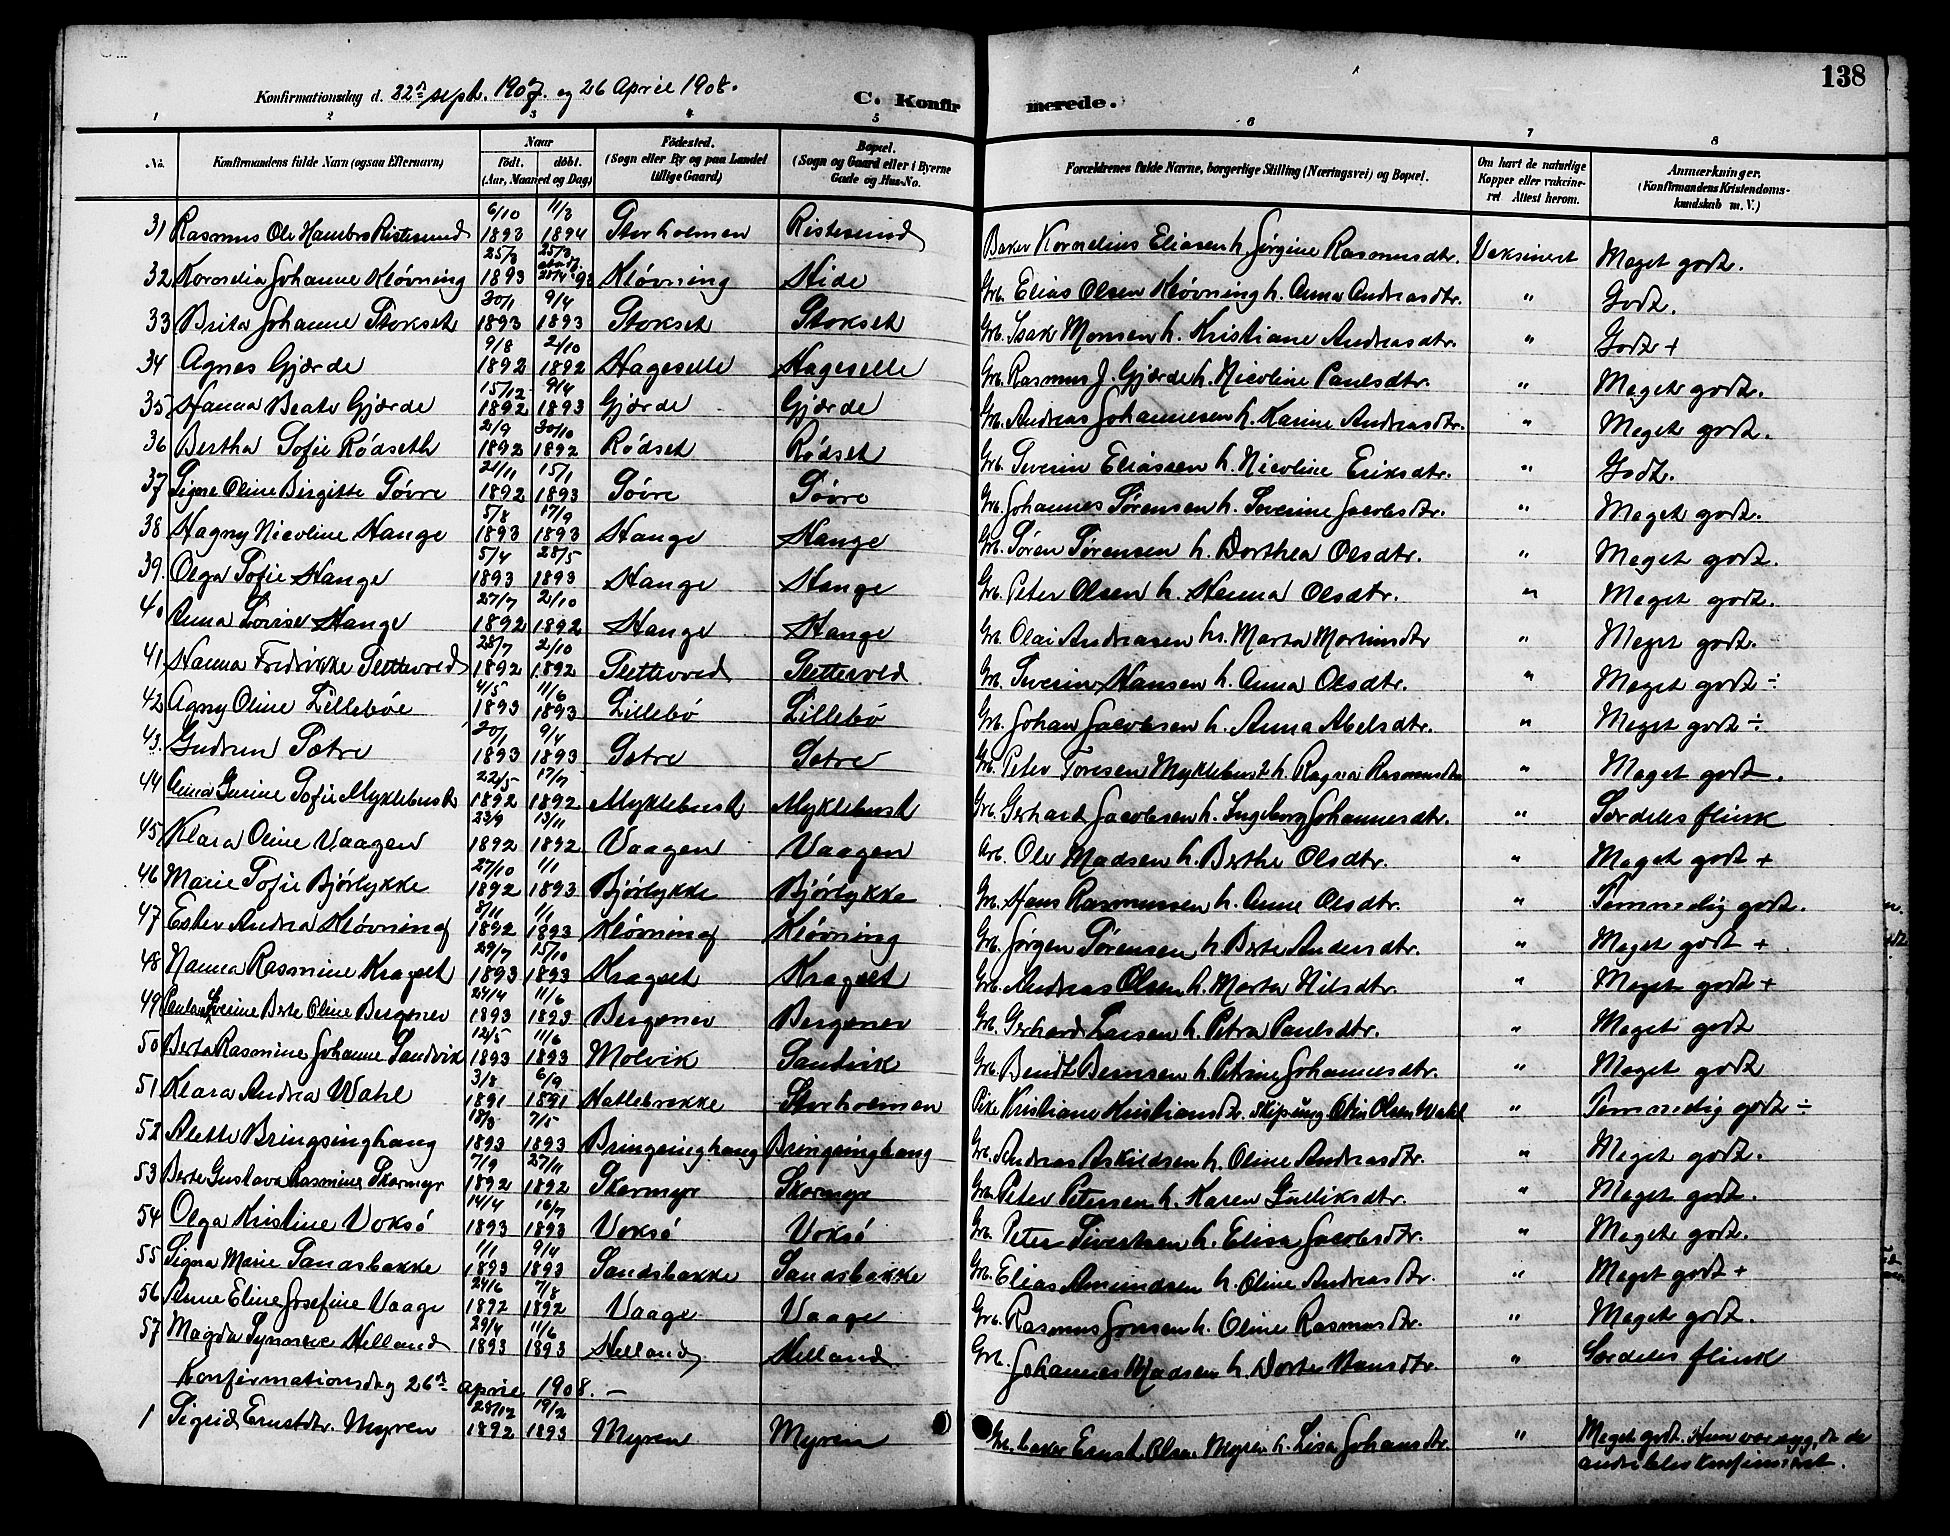 138
Konfirmationsdag d. 22de sept. 1907. og 26 April 1908.
C. Konfirmerede.
1 2 3 4 5 6 7 8
No. Konfirmandens fulde Navn (ogsaa Efternavn) Naar født. døbt. (Aar, Maaned og Dag) Fødested. (Sogn eller By og paa Landet tillige Gaard) Bopæl. (Sogn og Gaard eller i Byerne Gade og Hus-No. Forældrenes fulde Navne, borgerlige Stilling (Næringsvei) og Bopæl. Om havt de naturlige Kopper eller vakcineret Attest herom. Anmærkninger. (Konfirmandens Kristendomskundskab m. V.)
31 Rasmus Ole Ristesund 6/10 1893 11/3 1894 Storholmen Ristesund Baker Kornelius Eliasen h. Jørgine Rasmusdtr. Vaksinert Meget godt.
32 Kornelia Johanne Kløvning 25/3 1893 25/3 Kløvning Hide Grb. Elias Olsen Kløvning h. Anna Andreasdtr. " Godt.
33 Brita Johanne Stokset 30/1 1893 9/4 1893 Stokset Stokset Grb. Isak Monsen h. Kristiane Andreasdtr. " Godt +
34 Agnes Gjørde 9/8 1892 2/10 1892 Hageselle Hageselle Grb. Rasmus J. Gjørde h. Nicoline Paulsdtr. " Meget godt.
35 Hanna Beate Gjørde 15/12 1892 9/4 1893 Gjørde Gjørde Grb. Andreas Johannesen h. Karine Andreasdtr. " Meget godt.
36 Bertha Sofie Rødseth 2/9 1892 30/10 1892 Rødset Rødset Grb. Severin Eliassen h. Nicoline Eriksdtr. " Godt.
37 Signe Oline Birgitte Søvre 21/11 1892 15/1 1893 Søvre Søvre Grb. Johannes Sørensen h. Severine Jacobsdtr. " Meget godt.
38 Hagny Nicoline Hauge 5/8 1893 17/9 1893 Hauge Hauge Grb. Søren Sørensen h. Dorthea Olsdtr. " Meget godt.
39. Olga Sofie Hauge 5/4 1893 28/5 1893 Hauge Hauge Grb. Peter Olsen h. Hanna Olsdtr. " Meget godt.
40 Anna Lovise Hauge 27/7 1892 2/10 1892 Hauge Hauge Grb. Olai Andreasen h. Marta Martinsdtr " Meget godt.
41, Hanna Fredrikke Slettevold 28/7 1892 2/10 1892 Slettevold Slettevold Grb. Severin Hansen h. Anna Olsdtr. " Meget godt ÷
42 Agny Oline Lillebøe 4/5 1893 11/6 1893 Lillebø Lillebø Grb. Johan Jacobsen h. Anna Abelsdtr. " Meget godt ÷
43. Gudrun Sætre 20/1 1893 9/4 1893 Sætre Sætre Grb. Peter Toresen Myklebust h. Ragna Rasmusdtr " Meget godt.
44 Anna Gurine Sofie Myklebust 22/5 1892 17/7 1892 Myklebust Myklebust Grb. Gerhard Jacobsen h. Ingeborg Johannesdtr. " Særdeles flink
45, Klara Oline Vaagen 23/9 1892 13/11 1892 Vaagen Vaagen Arb. Ole Madsen h. Berthe Olsdtr. " Meget godt +
46 Marie Sofie Bjørlykke 27/10 1892 1/1 1893 Bjørlykke Bjørlykke Grb. Hans Rasmussen h. Anne Olsdtr. " Temmelig godt.
47 Ester Andrea Kløvning 8/11 1892 1/1 1893 Kløvning Kløvning Grb. Jørgen Sørensen h. Berte Andersdtr. " Meget godt +
48 Nanna Rasmine Kragset 29/7 1893 15/10 1893 Kragset Kragset Grb. Andreas Olsen h. Marta Nilsdtr. " Meget godt +
49 Paulau Severine Berte Oline Bergsnev 24/4 1893 11/6 1893 Bergsnev Bergsnev Grb. Gerhard Larsen h. Petra Paulsdtr. " Meget godt
50 Berta Rasmine Johanne Sandvik 12/5 1893 11/6 1893 Molvik Sandvik Grb. Bendt Berntsen h. Petrine Johannesdtr. " Meget godt
51 Klara Andrea Wahl 3/8 1891 6/9 1891 Hatlebrekke Storholmen Pike Kristiane Kristiansdtr. Skipsung Olin Olsen Wahl " Temmelig godt ÷
52 Alette Bringsinghaug 18/3 1893 7/5 1893 Bringsinghaug Bringsinghaug Grb. Andreas Askildsen h. Oline Andreasdtr. " Meget godt.
53 Berte Gustava Rasmine Skarmyr 7/9 1892 27/11 1892 Skarmyr Skarmyr Grb. Peter Petersen h. Karen Gulliksdtr. " Meget godt.
54 Olga Kristine Voksø 14/4 1893 16/7 1893 Voksø Voksø Grb. Peter Sivertsen h. Elisa Jacobsdtr. " Meget godt.
55 Signa Marie Sandsbakke 1/1 1893 9/4 1893 Sandsbakke Sandsbakke Grb. Elias Amundsen h. Oline Andreasdtr. " Meget godt +
56 Anne Eline Josefine Vaage 24/6 1892 7/8 1892 Vaage Vaage Grb. Rasmus Jonsen h. Oline Rasmusdtr. " Meget godt.
57 Magda Synneve Helland 29/4 1893 11/6 1893 Helland Helland Grb. Johannes Madsen h. Dorte Hansdtr. " Særdeles flink
Konfirmationsdag 26de april 1908. —
1 Sigrid Ernstdtr. Myren 28/12 1892 19/2 1893 Myren Myren Ernst Olsen Myren h. Lisa Johansdtr. " Meget godt. Hun var syg, da de
andre blev konfirmert.